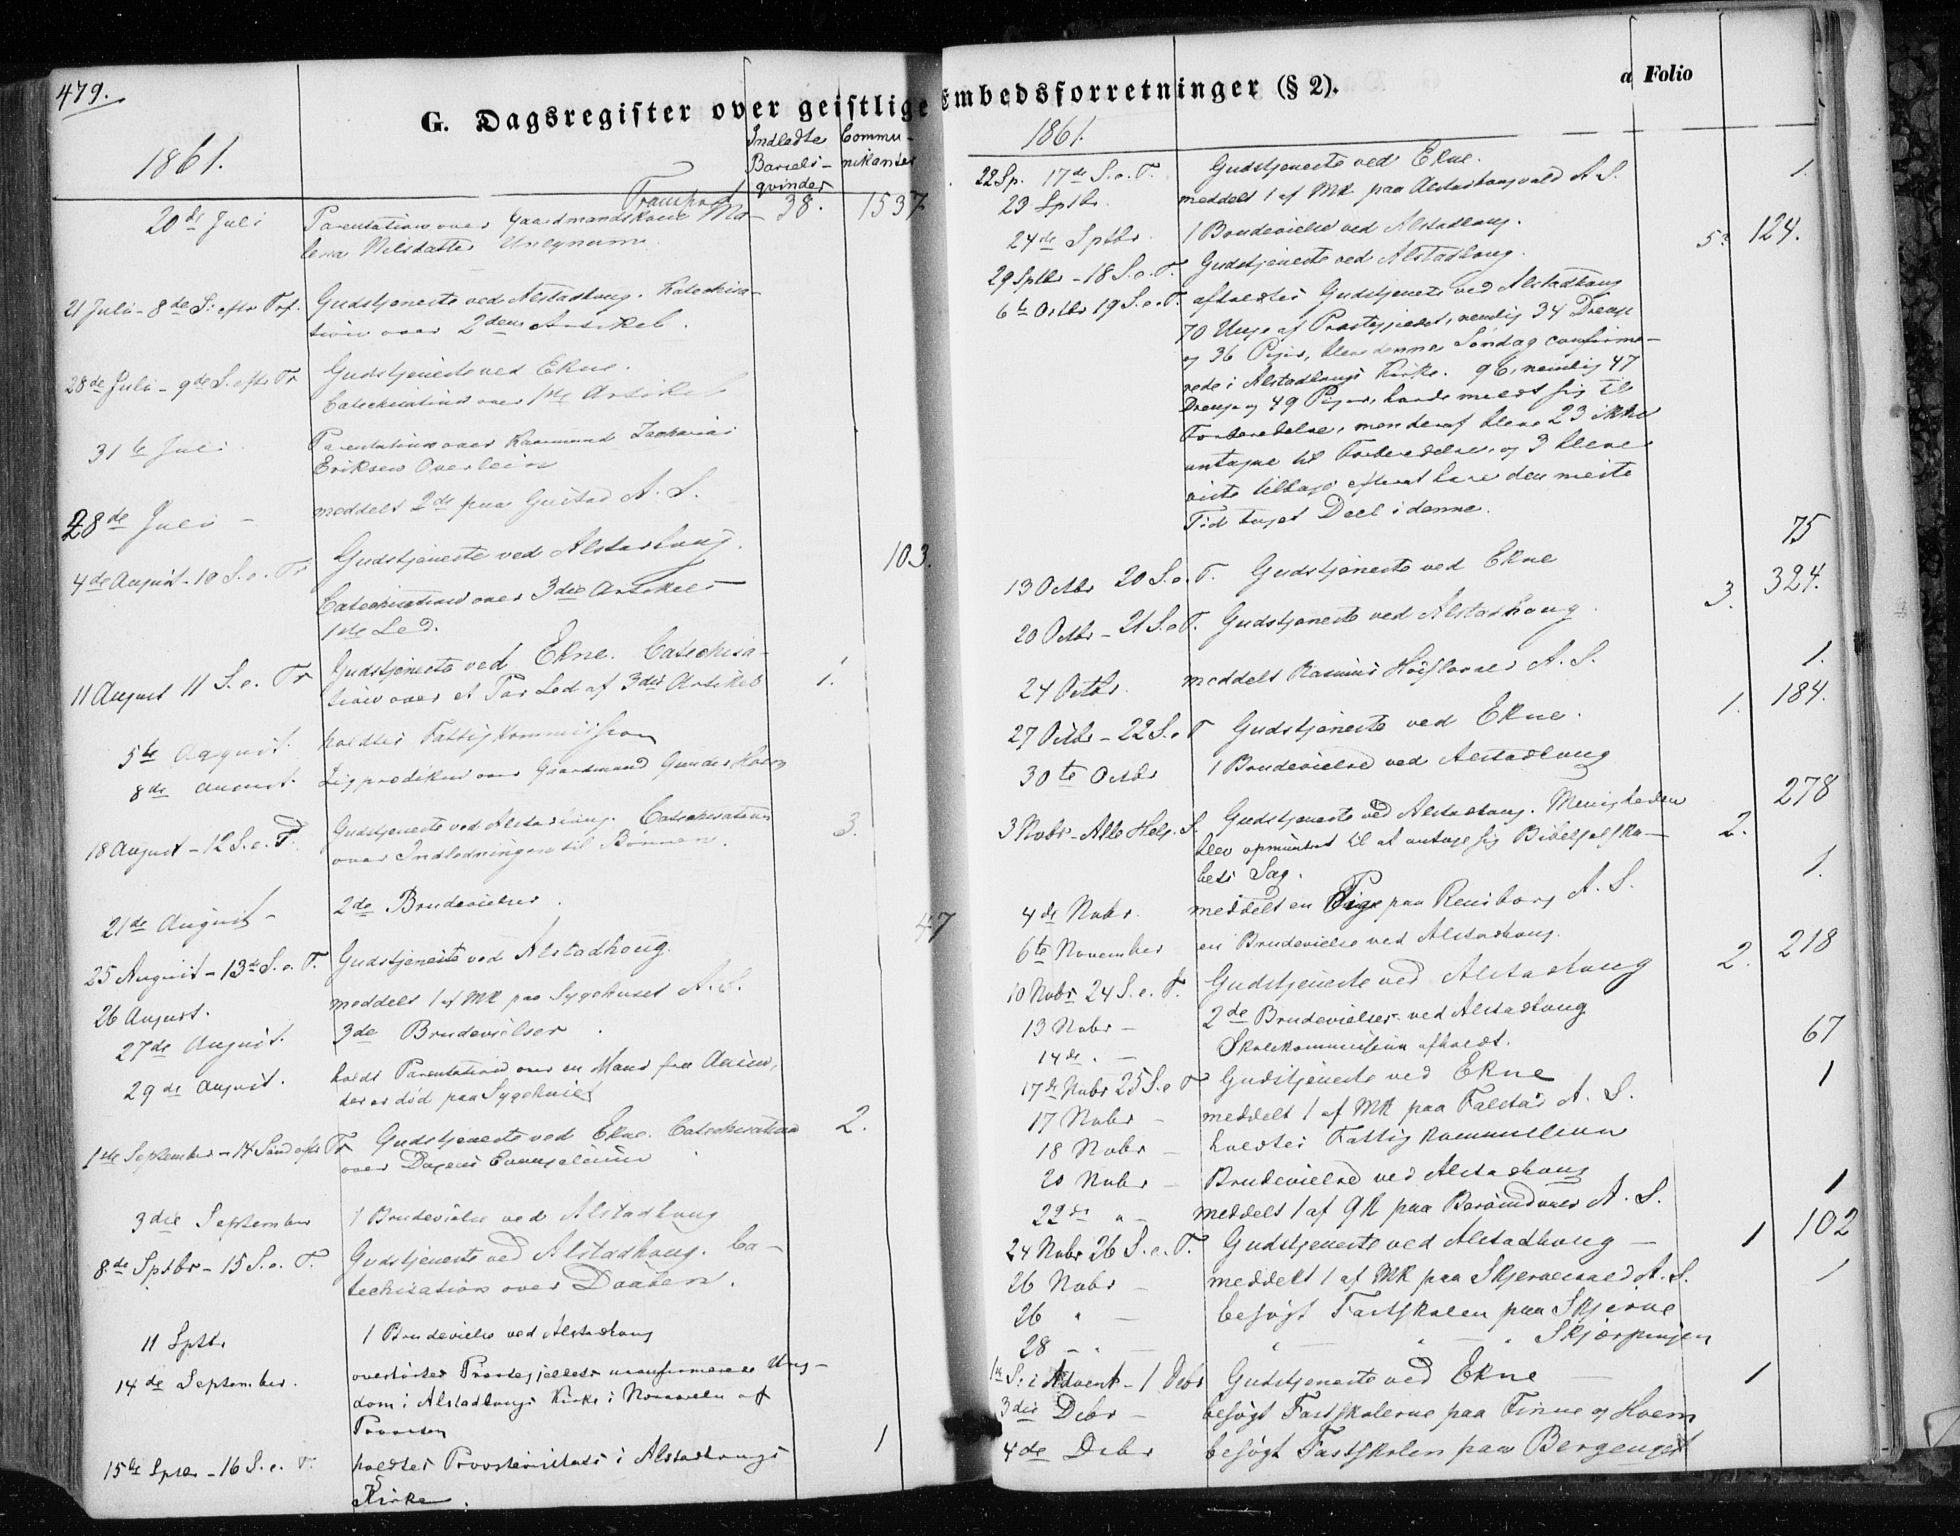 479.
G. Dagsregister over geistlige Embedsforretninger (§ 2).
1861.
Indledte Barsels-qvinder
Commu-nikanter
Transport 38. 1537
20de Juli Parentation over Gaardmandskone Ma-
lena Nilsdatter
21 Juli - 8de S. efter Tref. Gudstjeneste ved Alstadhoug. Catechisa-
tion over 2den Artikel.
28de Juli - 9de S. efter Tr Gudstjeneste ved Ekne.
Catechisation over 1ste Artikel
31te Juli Parentation over Kaarmand Zacharias
Eriksen Overlein
28de Juli - meddelt 2de paa Gustad A. S.
4de August - 10 S. e. Tr Gudstjeneste ved Alstadhoug. 103.
Catechisation over 3die Artikel
1ste Led.
11 August 11 S. e. Tr Gudstjeneste ved Ekne. Catechisa-
tion over et Par Led af 3die Artikel 1.
5te August. holdtes Fattigkommission
8de August. Ligprædiken over Gaardmand Gunder Hoem
18 August - 12 S. e. T. Gudstjeneste ved Alstadhoug. Catechisation 3.
over Indledningen til Bønnen.
21de August - 2de Brudevielser.
25 August - 13de S. e. T. Gudstjeneste ved Alstadhoug. 47
26 August. meddelt 1 af MK paa Sygehuset A. S.
27de August. 3de Brudevielser.
29de August. holdt Parentation over en Mand fra
der er død paa Sygehuset
1ste September - 14 Sønd efter Tr Gudstjeneste ved Ekne. Catechisation 2.
over Dagens Evangelium
3die September 1 Brudevielse ved Alstadhoug
8de Sptbr - 15 S. e. T. Gudstjeneste ved Alstadhoug. Ca-
techisation over Daaben.
11 Sptbr 1 Brudevielse ved Alstadhoug
14de September. overhørtes Præstegjeldets uconfirmerede Ung-
dom i Alstadhougs Kirke i Nærværelse af
Provsten 1
15de Sptbr - 16 S. e. T. holdtes Provstevisitats i Alstadhougs
Kirke.
a Folio
1861.
22 Sp. 17de S. e. T. Gudstjeneste ved Ekne.
23 Sptbr. meddelt 1 af MK paa Alstadhougvald A. S. 1.
24de Sptbr. 1 Brudevielse ved Alstadhoug.
29 Sptbr - 18 S. e. T. Gudstjeneste ved Alstadhoug. 124.
6te Octbr 19 S. e. T. afholdtes Gudstjeneste ved Alstadhoug
70 Unge af Præstegjeldet, nemlig 34 Drenge
og 36 Piger, bleve denne Søndag confirme-
rede i Alstadhougs Kirke. 96, nemlig 47
Drenge og 49 Piger, havde meldt sig til
Forberedelse, men deraf bleve 23 ikke
antagne til Forberedelse, og 3 bleve
viste tilbage efter at have den meste
Tid taget Deel i denne.
13 Octbr 20 S. e. T. Gudstjeneste ved Ekne 75
20 Octbr - 21 S. e. T. Gudstjeneste ved Alstadhoug 3. 324.
24 Octbr. meddelt Rasmus A. S. 1.
27 Octbr - 22 S. e. T Gudstjeneste ved Ekne. 1. 184.
30te Octbr 1 Brudevielse ved Alstadhoug
3 Nobr - Alle Helg. S. Gudstjeneste ved Alstadhoug. Menigheden 2. 278
blev opmuntret til at antage sig Bibelselska-
bets Sag.
4de Nobr. meddelt en Pige paa Rensborg A. S. 1.
6te November en Brudevielse ved Alstadhoug.
10 Nobr 24 S. e. T. Gudstjeneste ved Alstadhoug 2. 218
13 Nobr - 2de Brudevielser ved Alstadhoug
14de " - Skolekommission afholdt.
17de Nobr 25 S. e. T Gudstjeneste ved Ekne 67
17 Nobr - meddelt 1 af MK paa Falstad A. S. 1
18 Nobr - holdtes Fattigkommission
20 Nobr - Brudevielse ved Alstadhoug
22de " - meddelt 1 af QK paa A. S. 1
24 Nobr 26 S. e. T. Gudstjeneste ved Alstadhoug - 1 102
26 Nobr - meddelt 1 af MK paa Skjervevald A. S. 1
26 " - besøgt Fastskolen paa Skjerve
28 - " - " - Skjerpingen
1ste S. i Advent - 1 Debr Gudstjeneste ved Ekne - 1
3die Debr - besøgt Fastskolerne paa Finne og Hoem
4de Debr besøgt Fastskolen paa Bergenget